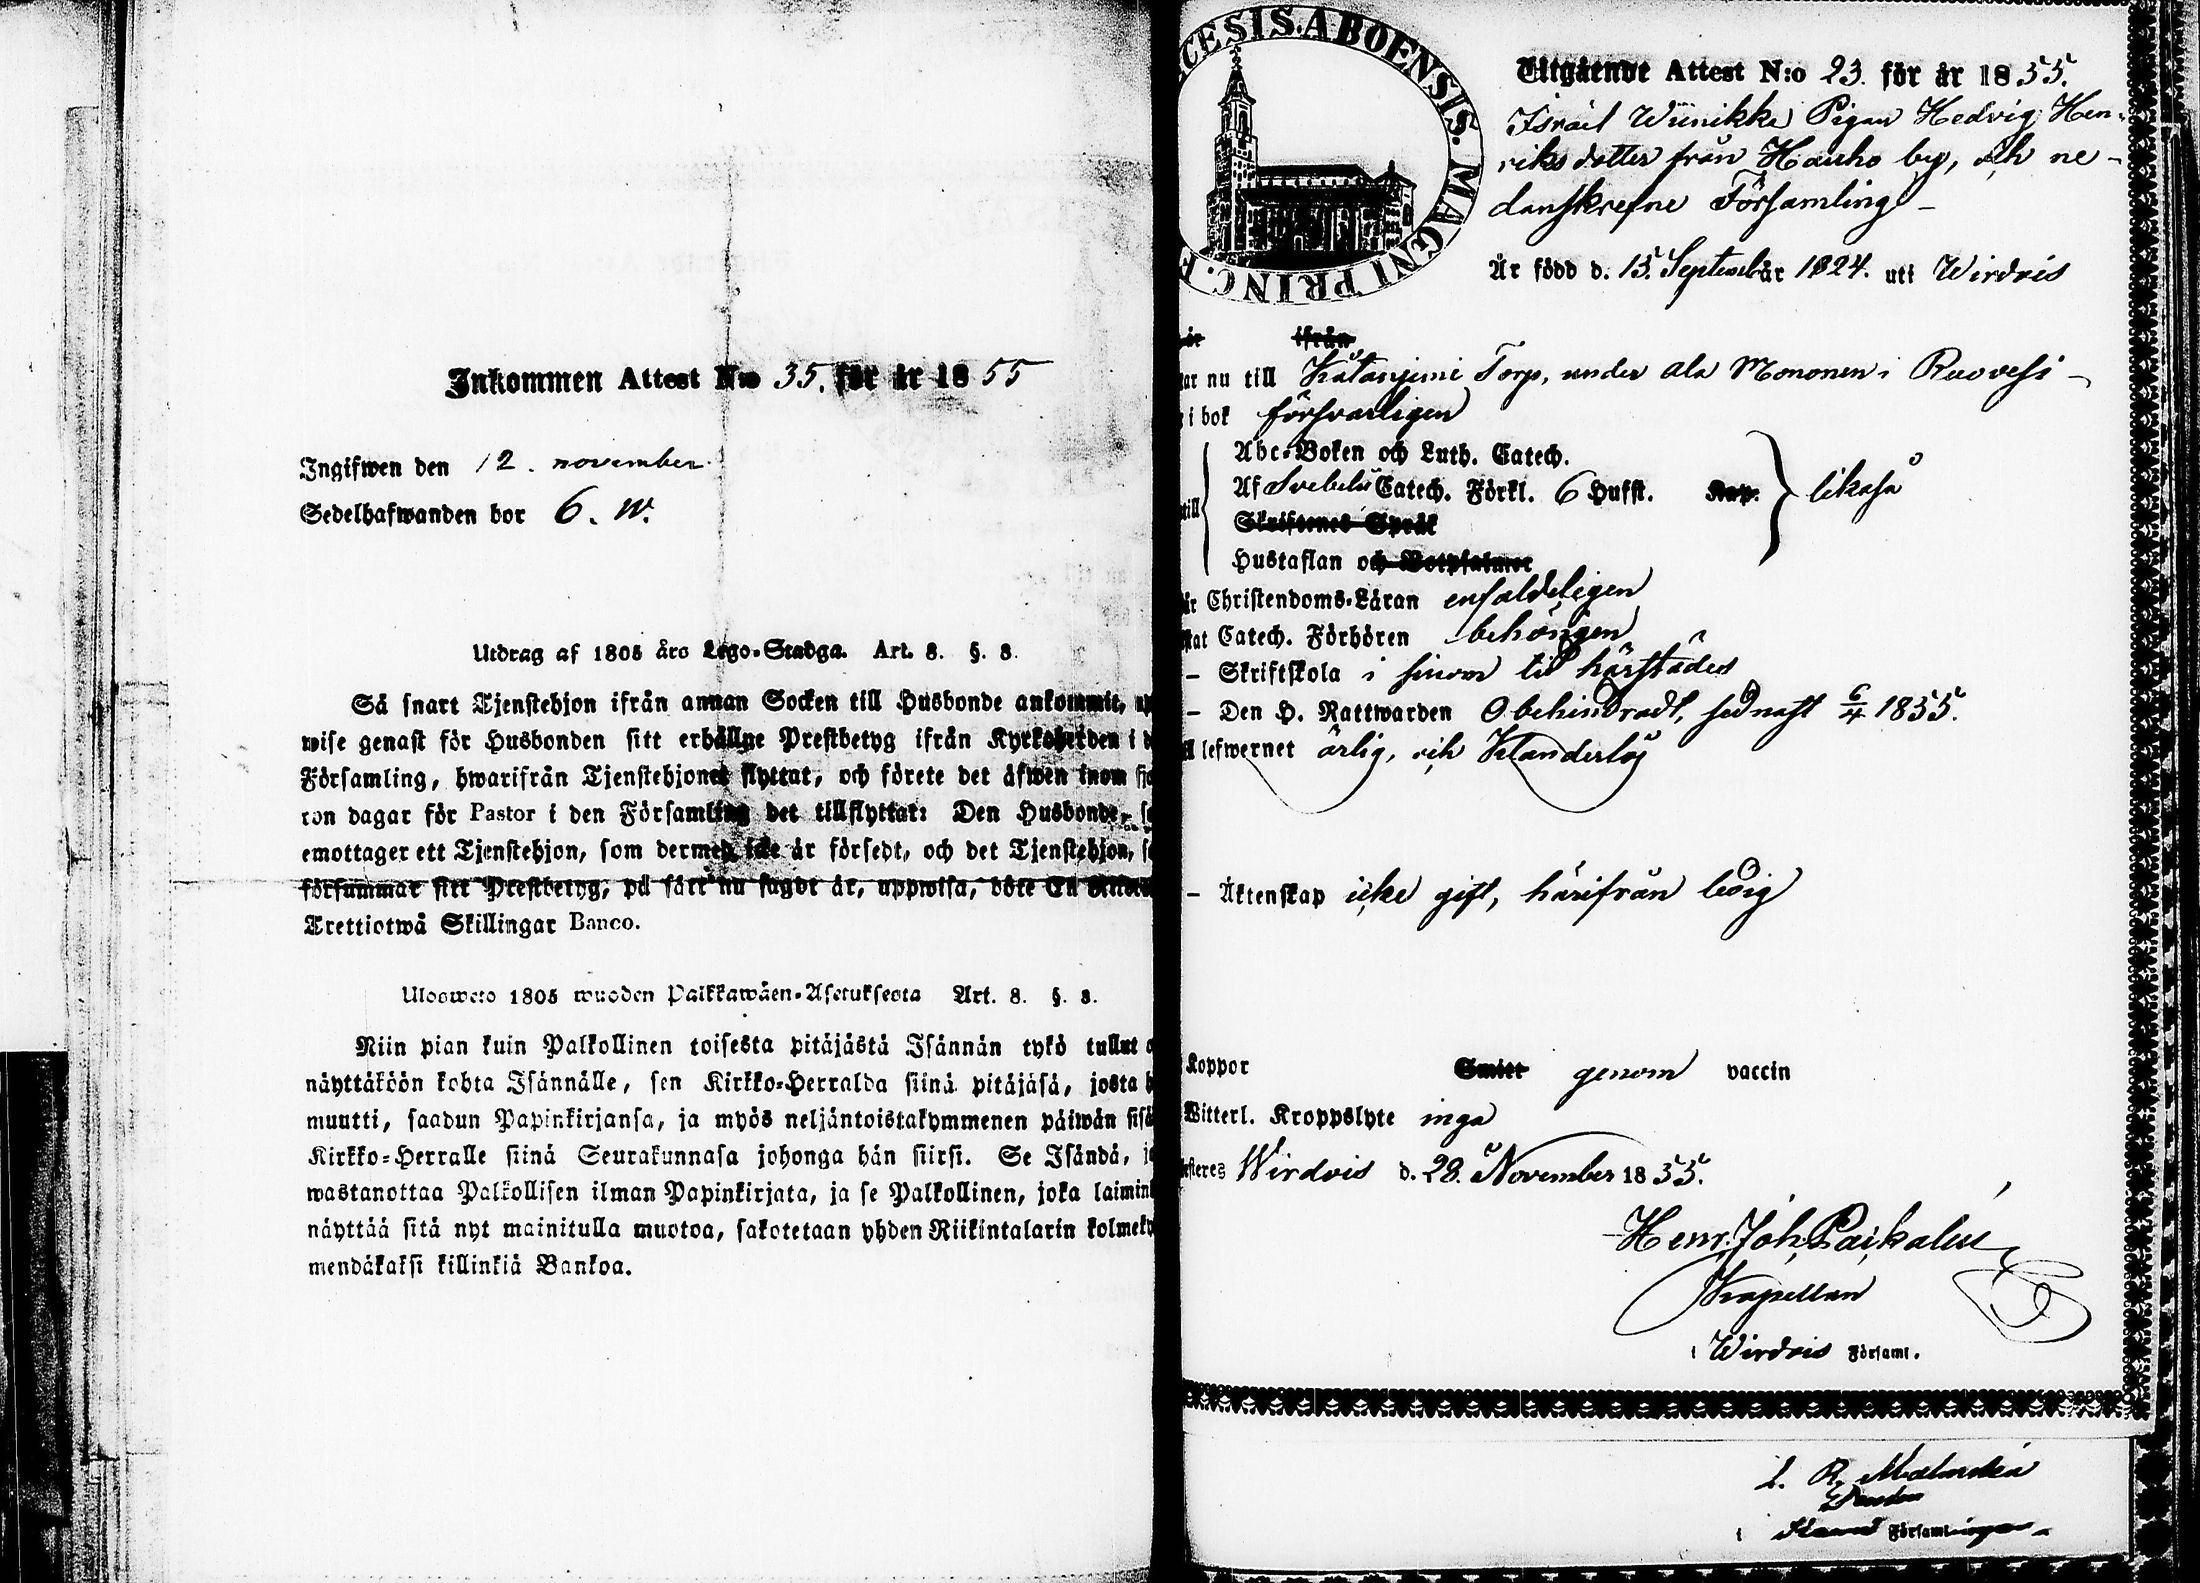 Inkommen Attest N:o 35. för år 1855
Ingifwen den 12. november.
Sedelhafwanden bor 6. W.
Utdrag af 1805 års Lego-Stadga. Art. 8. §. 8.
Så snart Tjenstehjon ifrån annan Socken till Husbonde ankommit,
wise genast för Husbonden sitt erhållne Prestbetyg ifrån Kyrkoherden i
Församling, hwarifrån Tjenstehjonet flyttat, och förete det äfwen inom
ton dagar för Pastor i den Församling det tillflyttat: Den Husbonde,
emottager ett Tjenstehjon, som dermed icke är försedt, och det Tjenstehjon,
försummar sitt Prestbetyg, på sätt nu sagdt är, uppwisa, böte En
Trettiotwå Skillingar Banco.
Ulosweto 1805 wuoden Palkkawäen-Asetuksesta Art. 8. §. 8.
Niin pian kuin Palkollinen toisesta pitäjästä Isännän tykö tullut
näyttäköön kohta Isännälle, sen Kirkko-Herralda siinä pitäjäsä, josta
muutti, saadun Papinkirjansa, ja myös neljäntoistakymmenen päiwän
Kirkko-Herralle siinä Seurakunnasa johonga hän siirsi. Se Isändä,
wastanottaa Palkollisen ilman Papinkirjata, ja se Palkollinen, joka
näyttää sitä nyt mainitulla muotoa, sakotetaan yhden Riikintalarin
mendäkaksi killinkiä Bankoa.
CESIS. ABOENSIS. MAGNI PRINC. F
Utgående Attest N:o 23. för år 1855.
Israel Wiinikke Pigan Hedvig Hen-
riksdotter från Hauho by, och ne-
danskrefne Församling -
Är född d. 15. September 1824. uti Wirdois
ifrån
nu till Torp, under Ala Mononen i Ruovesi -
i bok försvarligen
Abc-Boken och Luth. Catech.
Af Svebelii Catech. Förkl. 6 Hufst. Kap. likaså
Skriftenes Språk
Hustaflan och Botpsalmer
Christendoms-Läran enfaldeligen
Catech. Förhören behörigen
- Skriftskola i sinom tid härstädes
- Den H. Nattwarden Obehindradt, sednast 6/4 1855.
lefwernet ärlig, och Klanderlös
- Äktenskap icke gift, härifrån ledig
Koppor Smitt genom vaccin
Witterl. Kroppslyte inga
Wirdois d. 28. November 1855.
Henr. Joh.
Kapellan
i Wirdois Församl.
i Församlingen